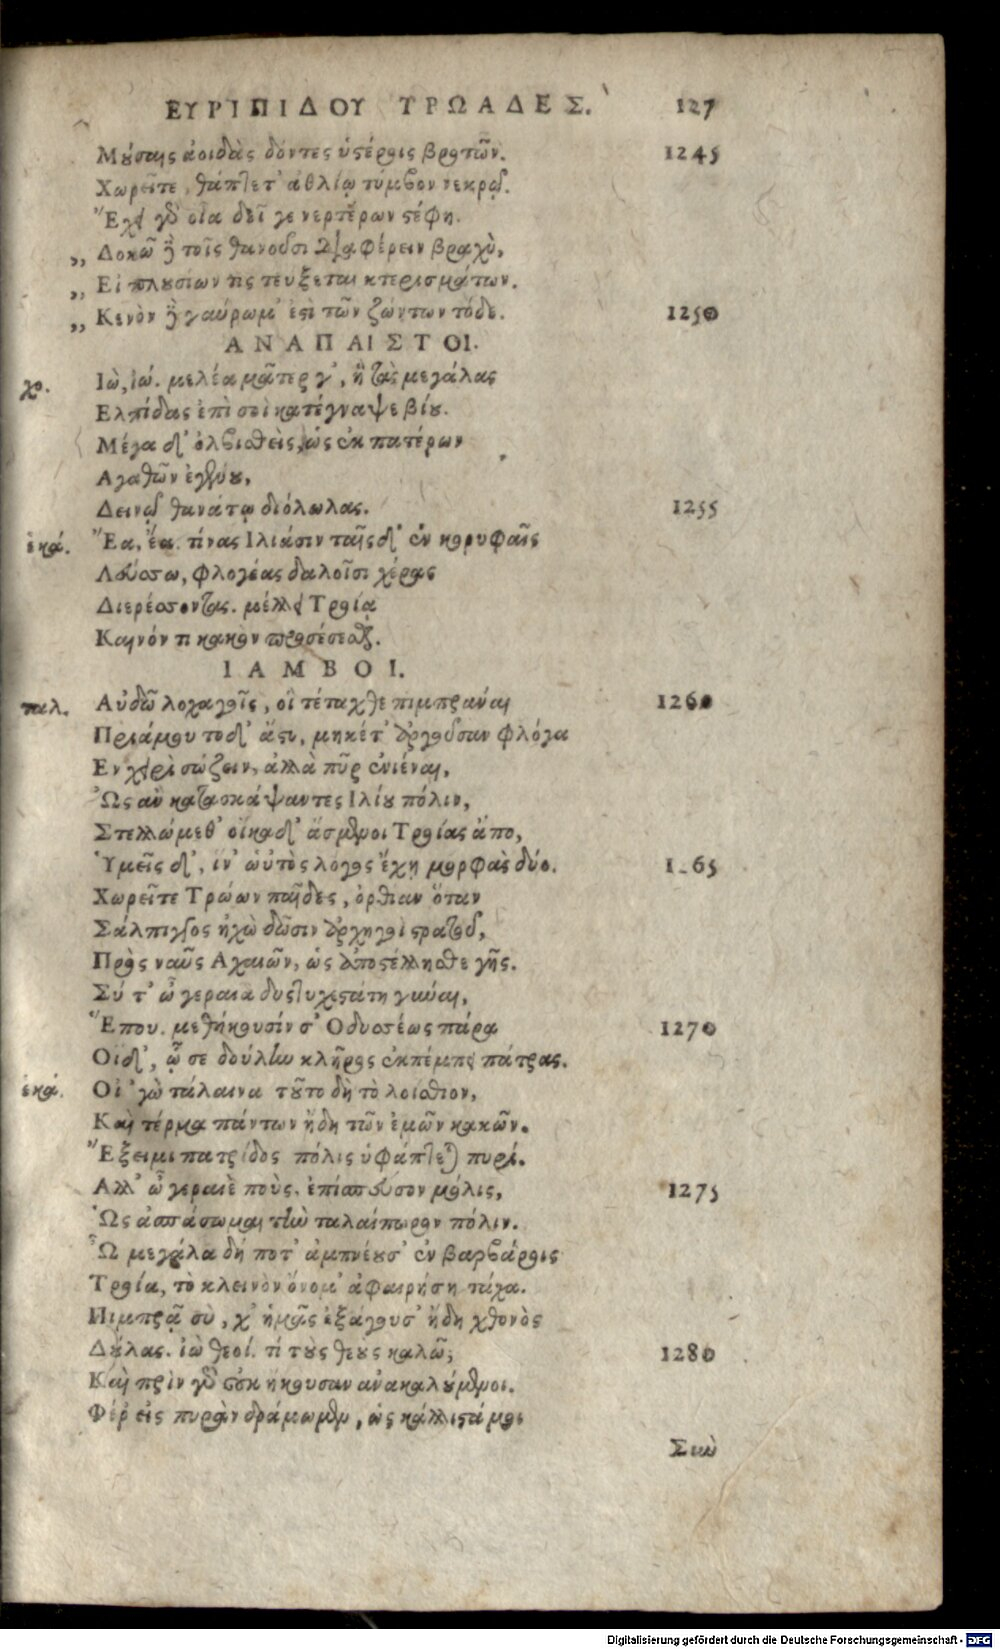 ΕΥΡΙΠΙΔΟΥ ΤΡΩΑΔΕΣ. 127
Μούσαις ἀοιδὰς δόντες ὑστέροις βροτῶν. 1245
Χωρεῖτε, θάπτετ' ἀθλίῳ τύμβον νεκρῷ.
Ἔχει γὰρ οἷα δεῖ γε νερτέρων στέφη.
„ Δοκῶ δὲ τοῖς θανοῦσι διαφέρειν βραχὺ,
„ Εἰ πλουσίων τις τεύξεται κτερισμάτων.
„ Κενὸν δὲ γαύρωμ' ἐστὶ τῶν ζώντων τόδε. 1250
ΑΝΑΠΑΙΣΤΟΙ.
χο. Ἰὼ, ἰώ. μελέα μᾶτερ γ', ἣ τὰς μεγάλας
Ελπίδας ἐπὶ σοὶ κατέγναψε βίου.
Μέγα δ' ὀλβισθεὶς, ὡς ἐκ πατέρων
Αγαθῶν ἐγένου,
Δεινῷ θανάτῳ διόλωλας. 1255
ἑκά. Ἔα, ἔα. τίνας Ιλιάσιν ταῖσδ' ἐν κορυφαῖς
Λεύσσω, φλογέας δαλοῖσι χέρας
Διερέσσοντας. μέλλει Τροίᾳ
Καινόν τι κακὸν προσέσεσθαι.
ΙΑΜΒΟΙ.
ταλ. Αὐδῶ λοχαγοῖς, οἳ τέταχθε πιμπράναι 1260
Πριάμου τόδ' ἄστυ, μηκέτ' ἀργοῦσαν φλόγα
Εν χειρὶ σώζειν, ἀλλὰ πῦρ ἐνιέναι,
Ὡς ἂν κατασκάψαντες Ιλίου πόλιν,
Στελλώμεθ' οἴκαδ' ἄσμενοι Τροίας ἄπο,
Ὑμεῖς δ', ἵν' ὡὐτὸς λόγος ἔχῃ μορφὰς δύο. 1 65
Χωρεῖτε Τρώων παῖδες, ὀρθίαν ὅταν
Σάλπιγγος ἠχὼ δῶσιν ἀρχηγοὶ στρατοῦ,
Πρὸς ναῦς Αχαιῶν, ὡς ἀποστέλλησθε γῆς.
Σύ τ' ὦ γεραιὰ δυστυχεστάτη γύναι,
Ἕπου. μεθήκουσίν σ' Οδυσσέως πάρα 1270
Οἵδ', ᾧ σε δούλην κλῆρος ἐκπέμπει πάτρας.
ἑκά. Οἲ 'γὼ τάλαινα τοῦτο δὴ τὸ λοίσθιον,
Καὶ τέρμα πάντων ἤδη τῶν ἐμῶν κακῶν.
Ἔξειμι πατρίδος πόλις ὑφάπτεται πυρί.
Αλλ' ὦ γεραιὲ ποὺς. ἐπίσπευσον μόλις, 1275
Ὡς ἀσπάσωμαι τὴν ταλαίπωρον πόλιν.
Ὦ μεγάλα δή ποτ' ἀμπνέουσ' ἐν βαρβάροις
Τροία, τὸ κλεινὸν ὄνομ' ἀφαιρήσῃ τάχα.
Πιμπρᾷ σὺ, χ' ἡμᾶς ἐξάγουσ' ἤδη χθονὸς
Δούλας. ἰὼ θεοί. τί τοὺς θεοὺς καλῶ; 1280
Καὶ πρὶν γὰρ οὐκ ἤκουσαν ἀνακαλούμενοι.
Φέρ εἰς πυρὰν δράμωμεν, ὡς κάλλιστά μοι
Σὺν
Digitalisierung gefördert durch die Deutsche Forschungsgemeinschaft - DFG